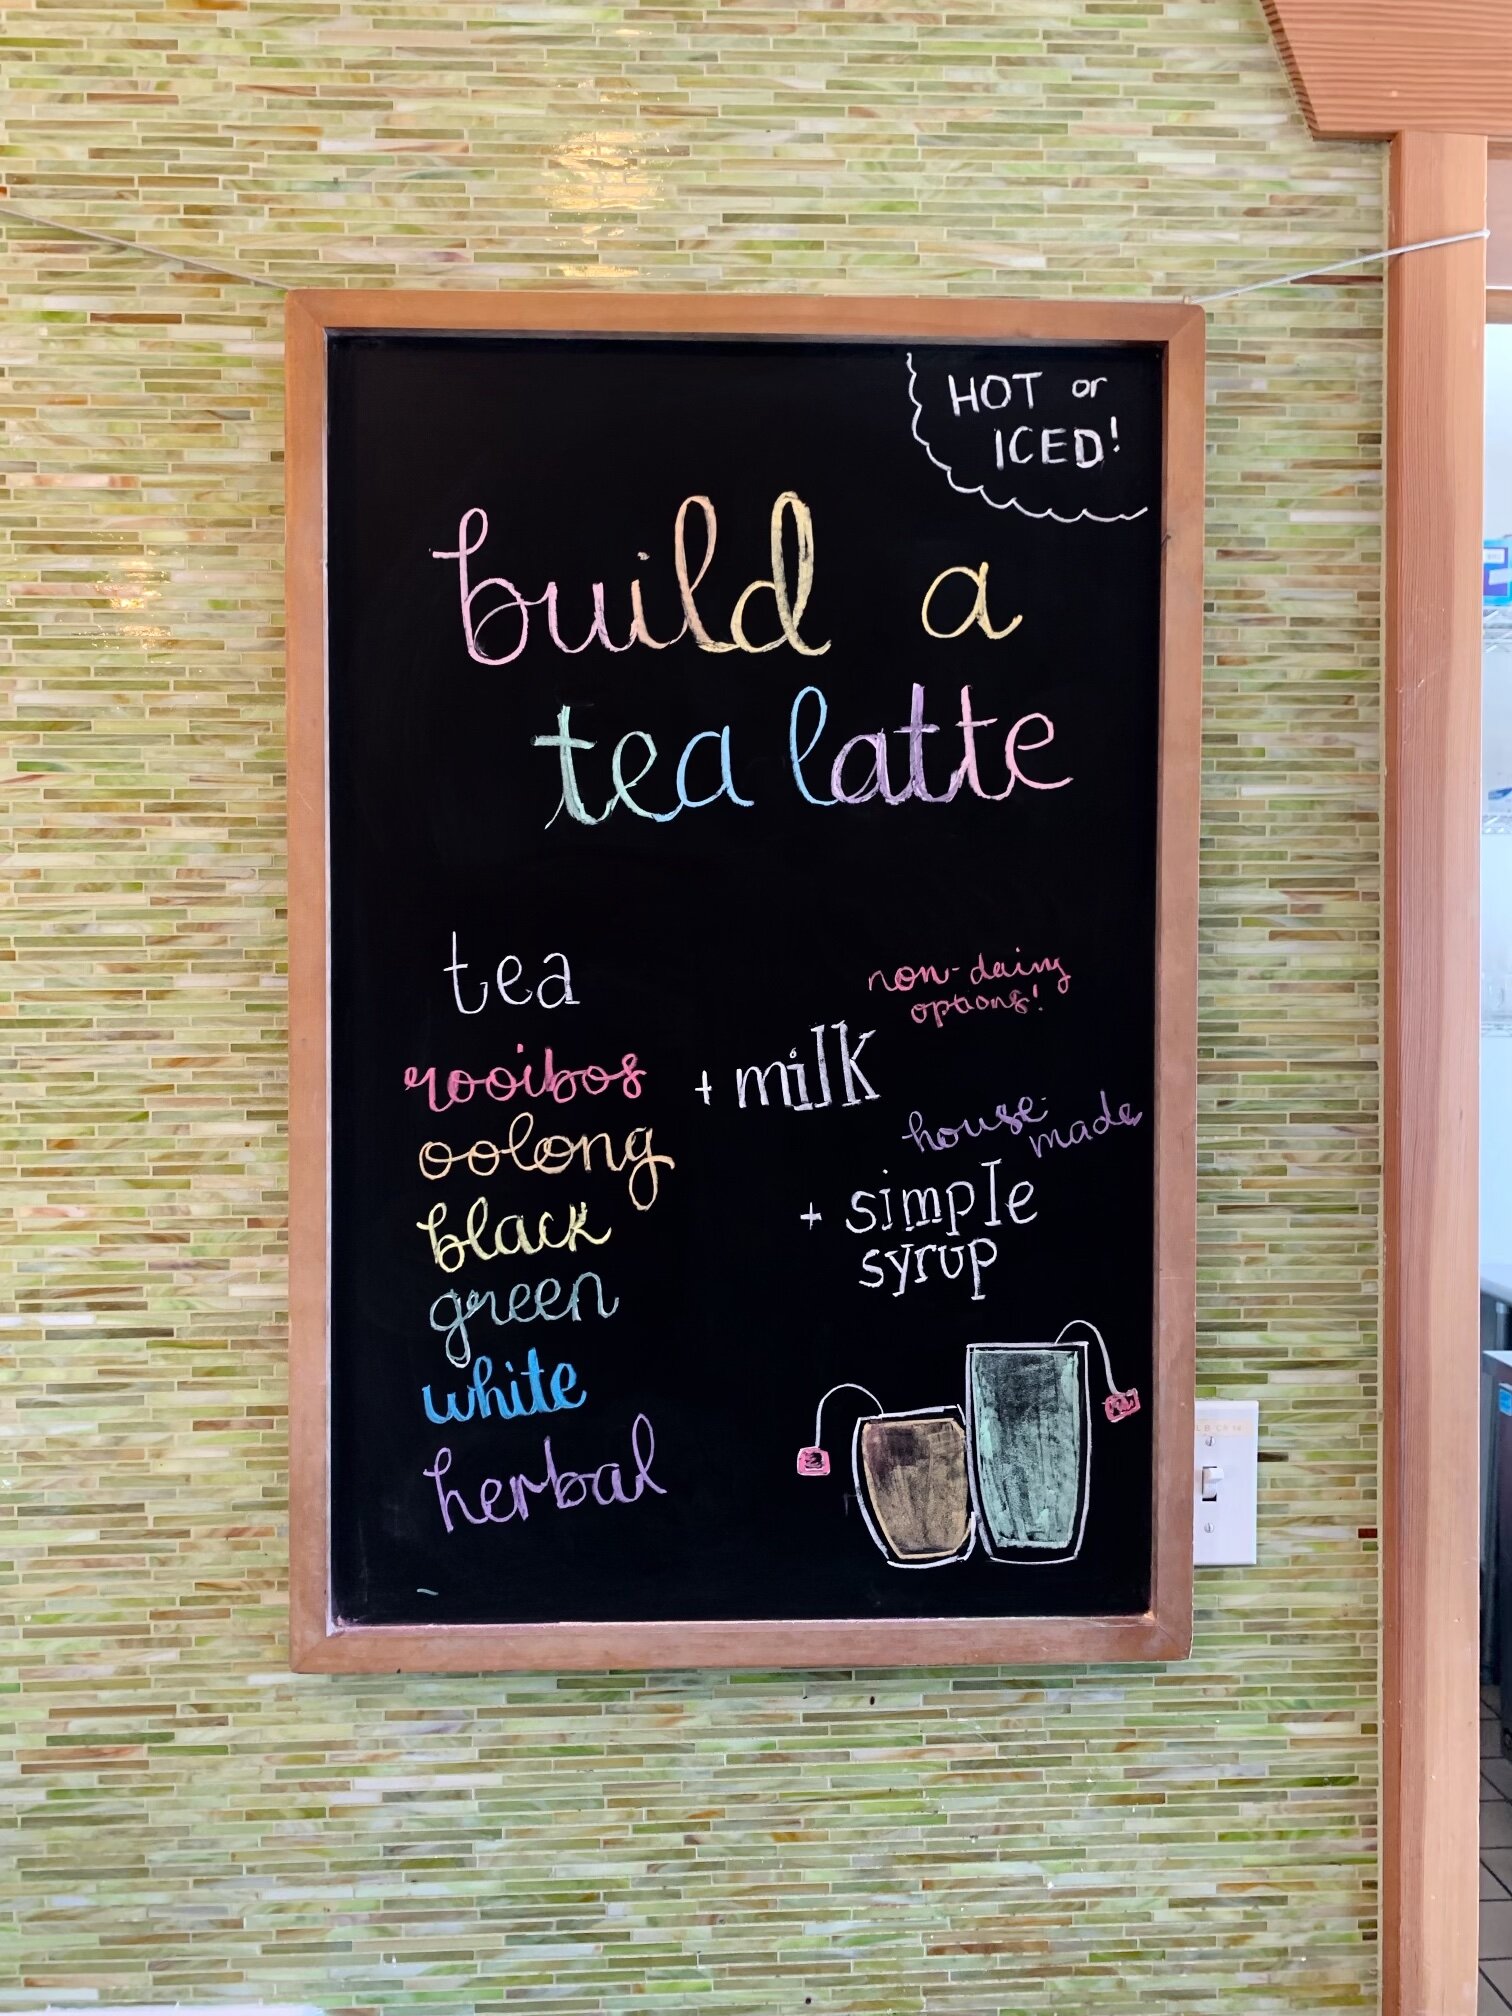 HOT or
ICED!
build a
tea latte
tea
rooibos
oolong
black
green
white
herbal
non-dairy
options!
+ milk
house-
made
+ simple
syrup